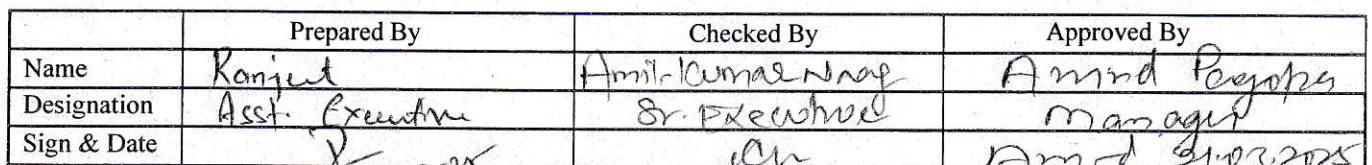 Prepared By Checked By Approved By
Name Ranjeet Amit Kumar Arvind
Designation Asst. Executive Sr. Executive Manager
Sign & Date Arvind